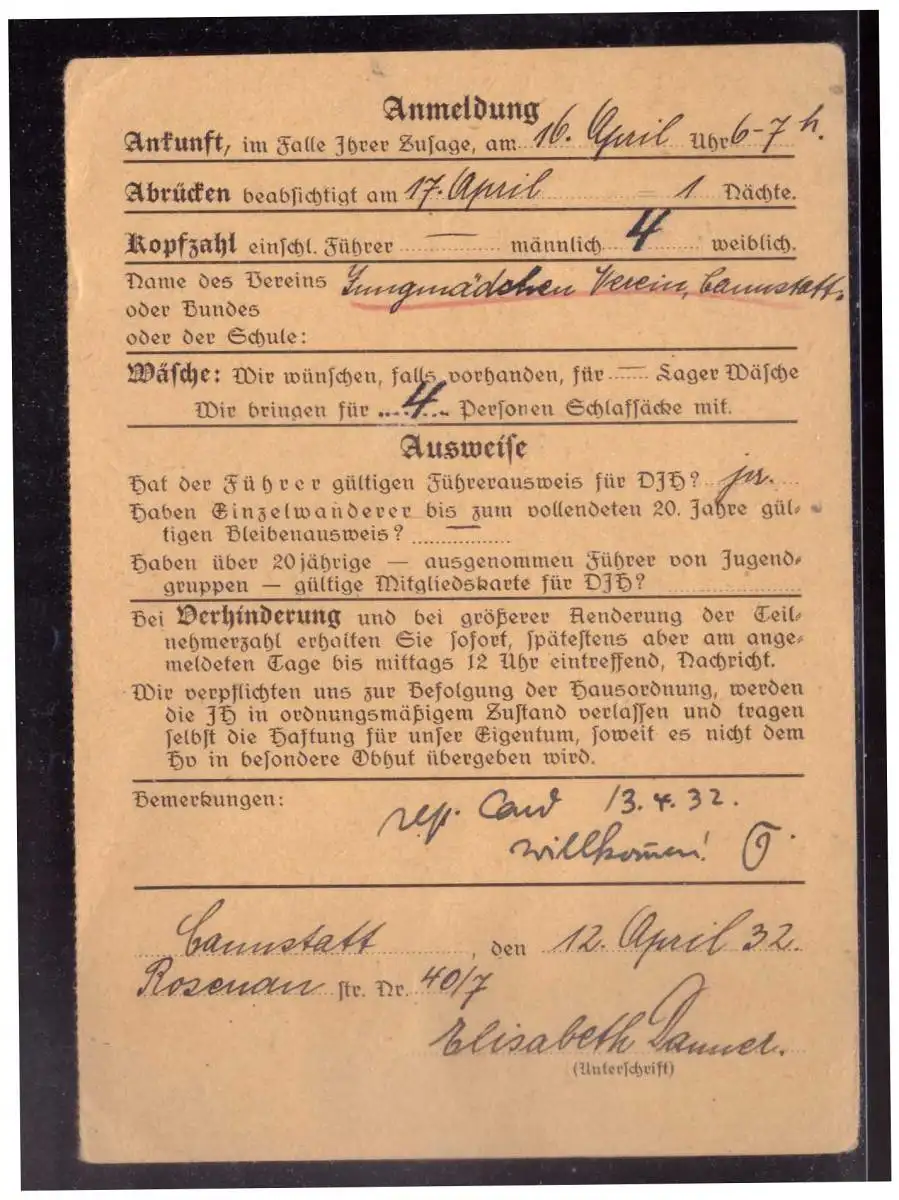 Anmeldung
Ankunft, im Falle Ihrer Zusage, am 16. April Uhr 6-7 h.
Abrücken beabsichtigt am 17. April = 1 Nächte.
Kopfzahl einschl. Führer — männlich 4 weiblich.
Name des Vereins Jungmädchen Verein, Cannstatt.
oder Bundes
oder der Schule:
Wäsche: Wir wünschen, falls vorhanden, für — Lager Wäsche
Wir bringen für 4 Personen Schlafsäcke mit.
Ausweise
Hat der Führer gültigen Führerausweis für DJH? ja.
Haben Einzelwanderer bis zum vollendeten 20. Jahre gül-
tigen Bleibenausweis? —
Haben über 20jährige — ausgenommen Führer von Jugend-
gruppen — gültige Mitgliedskarte für DJH?
Bei Verhinderung und bei größerer Aenderung der Teil-
nehmerzahl erhalten Sie sofort, spätestens aber am ange-
meldeten Tage bis mittags 12 Uhr eintreffend, Nachricht.
Wir verpflichten uns zur Befolgung der Hausordnung, werden
die JH in ordnungsmäßigem Zustand verlassen und tragen
selbst die Haftung für unser Eigentum, soweit es nicht dem
Hv in besondere Obhut übergeben wird.
Bemerkungen:
13.4.32.
willkommen!
Cannstatt, den 12. April 32.
Rosenau str. Nr. 40/7
Elisabeth Danner.
(Unterschrift)